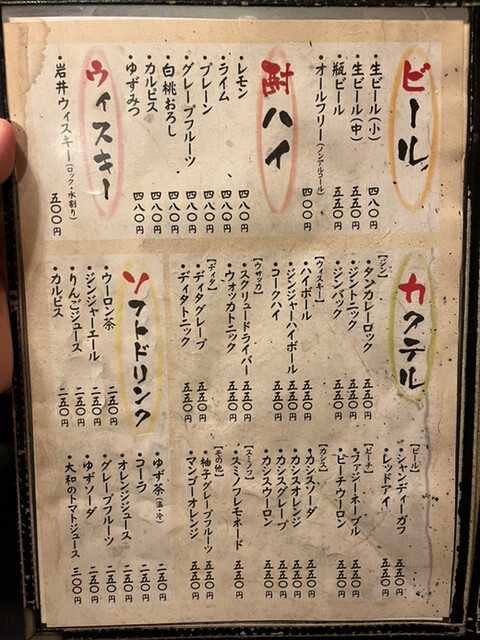 ビール
・生ビール(小) 四八〇円
・生ビール(中) 五五〇円
・瓶ビール 五五〇円
・オールフリー(ノンアルコール) 四〇〇円
酎ハイ
・レモン 四八〇円
・ライム 四八〇円
・プレーン 四八〇円
・グレープフルーツ 四八〇円
・白桃おろし 四八〇円
・カルピス 四八〇円
・ゆずみつ 四八〇円
ウィスキー
・岩井ウィスキー(ロック・水割り) 五〇〇円
カクテル
【ジン】
・タンカレーロック 五五〇円
・ジントニック 五五〇円
・ジンバック 五五〇円
【ウィスキー】
・ハイボール 五五〇円
・ジンジャーハイボール 五五〇円
・コークハイ 五五〇円
【ウオッカ】
・スクリュードライバー 五五〇円
・ウォッカトニック 五五〇円
【ディタ】
・ディタグレープ 五五〇円
・ディタトニック 五五〇円
【ビール】
・シャンディーガフ 五五〇円
・レッドアイ 五五〇円
【ピーチ】
・ファジーネーブル 五五〇円
・ピーチウーロン 五五〇円
【カシス】
・カシスソーダ 五五〇円
・カシスオレンジ 五五〇円
・カシスグレープ 五五〇円
・カシスウーロン 五五〇円
【スミノフ】
・スミノフレモネード 五五〇円
【その他】
・柚子グレープフルーツ 五五〇円
・マンゴーオレンジ 五五〇円
ソフトドリンク
・ウーロン茶 二五〇円
・ジンジャーエール 二五〇円
・りんごジュース 二五〇円
・カルピス 二五〇円
・ゆず茶(温・冷) 二五〇円
・コーラ 二五〇円
・オレンジジュース 二五〇円
・グレープフルーツ 二五〇円
・ゆずソーダ 二五〇円
・大和のトマトジュース 三〇〇円